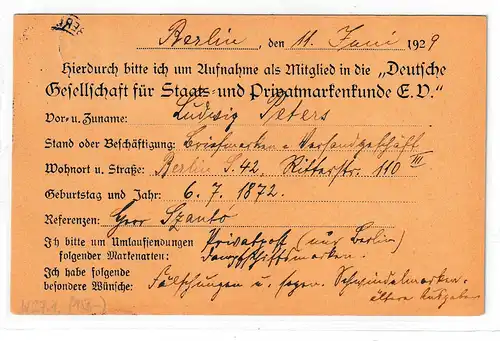 Berlin, den 11. Juni 1929
Hierdurch bitte ich um Aufnahme als Mitglied in die „Deutsche
Gesellschaft für Staats- und Privatmarkenkunde E.V.“
Vor- u. Zuname: Ludwig Peters
Stand oder Beschäftigung: Briefmarken Versandgeschäft
Wohnort u. Straße: Berlin S. 42, Ritterstr. 110 III
Geburtstag und Jahr: 6. 7. 1872.
Referenzen: Herr Szantó
Ich bitte um Umlaufsendungen Privatpost (nur Berlin)
folgender Markenarten: Dampfschiffsmarken.
Ich habe folgende
besondere Wünsche: Fälschungen u. sogen. Schwindelmarken.
ältere Ausgaben